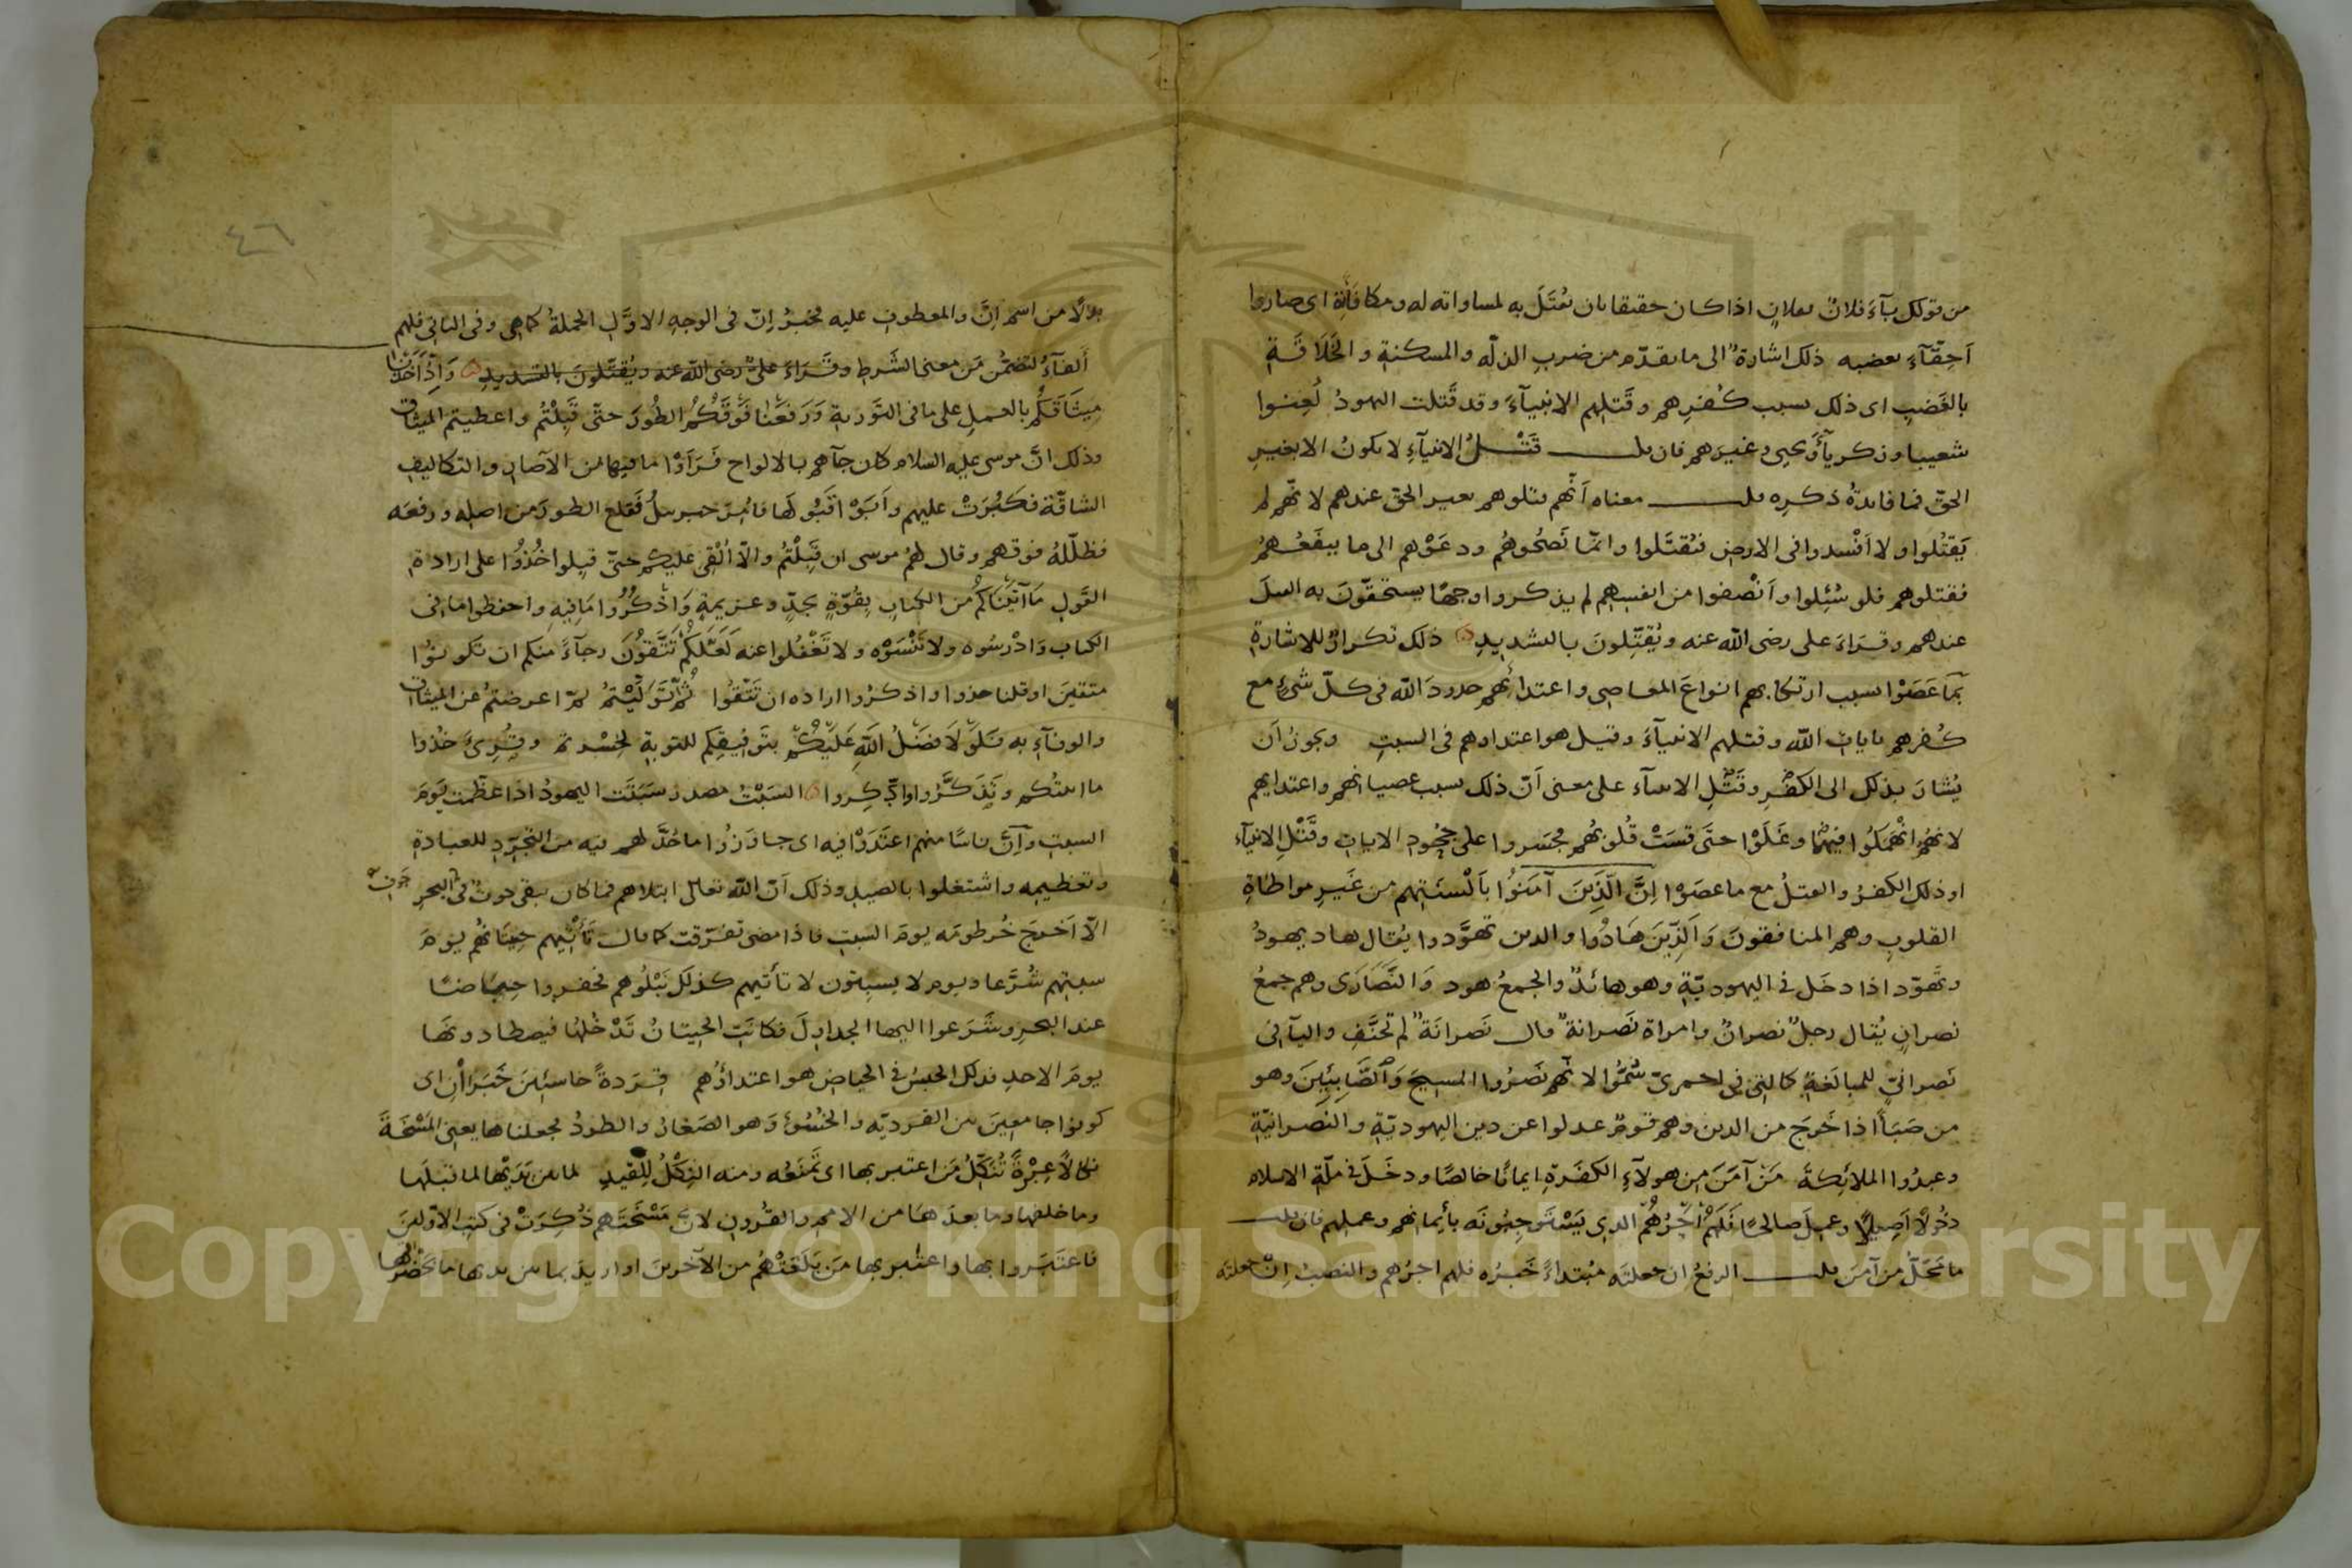 من قولك بآء فلانٌ بفلانٍ اذا كان حقيقا بان يُقتَلَ به لمساواته له ومكافأَتِه اى صاروا
اَحِقّآءَ بغضبه ذلك اشارةٌ الى ما تقدّم من ضربِ الذلّه والمسكنةِ والخَلاقَةِ
بالغَضَبِ اى ذلك بسبب كُفرِهم وقَتلِهم الانبيآءَ وقد قَتلت اليهودُ لُعِنوا
شعيبا وزكريآءَ ويحيى وغيرَهم فان قلت قَتْلُ الانبيآءِ لا يكونُ الا بغيرِ
الحقّ فما فايدةُ ذكرِه قلت معناه اَنّهم قتلوهم بغير الحق عندهم لانّهم لم
يَقتُلوا ولا اَفْسدوا فى الارضِ فيُقتَلوا وانّما نَصَحُوهُم ودعَوْهم الى ما ينفَعُهمُ
فقتلوهم فلو سُئِلوا واَنْصَفوا من انفسِهم لم يذكروا وجهًا يستحقّونَ به القتلَ
عندهم وقرَاءَ على رضى الله عنه ويُقتِّلونَ بالتشديدِ ذلك تكرارٌ للاشارةِ
بِمَا عَصَوْا بسبب ارتكابهم انواعَ المعاصِى واعتدائهم حدودَ الله فى كلّ شىءٍ مع
كُفرِهم بايات الله وقتلهم الانبيآءَ وقيل هو اعتداوهم فى السبتِ ويجوز اَن
يُشارَ بذلك الى الكفرِ وقَتْلِ الانبيآء على معنى اَنّ ذلك بسبب عصيانهم واعتدايهم
لانهُم انْهَمَكُوا فيهما وغَلَوْا حتَّى قسَتْ قُلوبُهُم فجسَروا على جُحُودِ الاياتِ وقَتْلِ الانبيآء
او ذلك الكفرُ والقتلُ مع ما عصَوْا اِنَّ الَّذِينَ آمَنُوا بِاَلْسنَتِهم من غَيرِ مواطاةِ
القلوبِ وهم المنافقونَ وَالَّذِينَ هَادُوا والذين تهوَّدوا يُقال هاد يهودُ
وتهوّد اذا دخَل فى اليهوديّةِ وهو هائدٌ والجمعُ هود وَالنَّصَارَى وهم جمعُ
نصرانٍ يُقال رجلٌ نصرانٌ وامراة نَصرانةٌ قال نَصرانَةٌ لم تَحنَّفِ واليآ فى
نَصرانىّ للمبالَغةِ كالتى فى احمرىّ سُمُّوا لانّهم نَصَرُوا المسيحَ وَالصَّابِئِينَ وهو
من صَبَأَ اذا خَرجَ من الدين وهم قومٌ عدلوا عن دين اليهوديّةِ والنصرانيّةِ
وعبدُوا الملائِكةَ مَنْ آمَنَ مِن هولآءِ الكفَرةِ ايمانًا خالصًا ودخَلَ فى ملّةِ الاسلام
دخُولًا اَصِيلًا وعمِلَ صالحًا فَلَهُمْ اَجْرُهُمُ الذى يَسْتَوجِبُونَه بأيمانهم وعملِهم فان قلت
ما مَحَلُّ من آمنَ قلت الرفعُ ان جعلتَه مُبتداءً خَبرُه فلهم اجرُهم والنصبُ اِنْ جعلتَه
٤٦
بدلًا من اسم انَّ والمعطوفِ عليه فخبرُ اِنّ فى الوجهِ الاوَّلِ الجملةُ كما هى وفى الثانى فلهم
الفآءُ لتضمُّن مَن معنى الشَرطِ وقَرَاءَ علىٌّ رضى الله عنه ويُقتِّلونَ بالتشديدِ وَاِذْ اَخَذْنَا
مِيثَاقَكُم بالعملِ على ما فى التَوريةِ وَرَفَعْنَا فَوْقَكُمُ الطُورَ حتّى قَبِلْتُمْ واعطيتم الميثاق
وذلك انَّ موسى عليه السلام كان جآءهم بالالواح فَرَاَوْا ما فيها من الآصارِ والتكاليفِ
الشاقّة فكَبُرَتْ عليهم واَبَوْا قَبُولَها فأمِرَ جبريلُ فَقلع الطورَ من اصلِه ورفعَه
فظلّلَهُ فوقهم وقال لهمُ موسى ان قَبِلْتُمْ والّا اُلْقِىَ عليكم حتّى قبِلوا خُذُوا على ارادة
القَولِ مَا آتَيْنَاكُمْ من الكتابِ بِقُوّةٍ بجدٍّ وعزيمةٍ وَاذْكُرُوا مَا فِيهِ واحفظوا ما فى
الكتاب وَادْرسُوه ولا تَنْسَوْه ولا تَغْفُلوا عنه لَعَلَّكُمْ تَتَّقُونَ رجآءً منكم ان تكونُوا
متقينَ او قلنا خذوا واذكرُوا اراده ان تتّقُوا ثُمَّ تَوَلَّيْتُمْ ثمّ اعرضتم عن الميثاق
والوفآءِ به فَلَوْلَا فَضْلُ اللَّهِ عَلَيْكُمْ بتَوفيقِكم للتوبةِ لخسْرتم وقُرِىَ خُذوا
ما اتيتُكم وتَذَكَّرُوا واذّكِروا السَبْتُ مصدرُ سَبَتَت اليهودُ اذا عظّمت يَومَ
السبتِ وَاِنَّ ناسًا منهم اعتَدَوْا فيه اى جاوَزُوا ما حُدَّ لهم فيه من التجرّدِ للعبادةِ
وتعظيمِه واشتغلوا بالصيدِ وذلك اَنّ الله تعالى ابتلاهم فما كان يبقى حوتٌ فى البحرِ
الّا اَخرجَ خُرطومَه يومَ السَبتِ فاذا مضى تفرّقت كما قال تَأْتِيهم حِيتَانُهُم يومَ
سبتِهم شُرَّعا ويوم لا يسبِتون لا تأتيهم كذلك نَبْلُوهم فحفروا حِياضًا
عند البحرِ وشَرَعوا اليها الجداوِلَ فكانَتِ الحِيتانُ تَدْخُلُها فيصطادونَها
يومَ الاحدِ فذلك الحَبسُ فى الحياضِ هو اعتداؤُهم قِرَدةً خاسئِينَ خَبَرانِ اى
كونوا جامعِينَ بين القِرديّه والخُسُوءِ وَهو الصَغارُ والطردُ فجعلناها يعنى المَسْخَةَ
نكالًا عِبْرةً تُنَكِّلُ مَن اعتبر بها اى تَمْنَعُه ومنه النِكْلُ لِلْقَيدِ لما بين يَدَيْها لما قبلَها
وما خلفها وما بعدَهَا من الامم والقُرونِ لانّ مَسْخَتَهم ذُكِرَتْ فى كتبِ الاوّلينَ
فاعتَبَروا بها واعتبر بها مَن بَلَغَتْهُم من الآخرينَ او اريدَ بما بين يديها ما بحَضْرتِها
Copyright © King Saud University